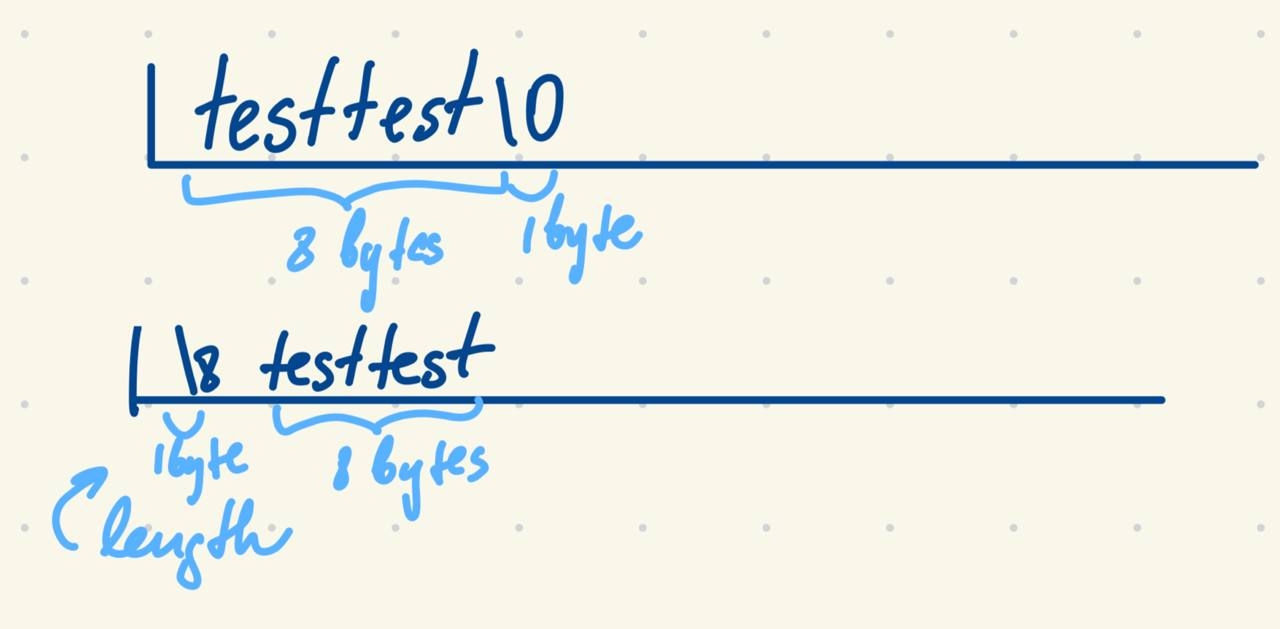 testtest\0
8 bytes 1byte
\8 testtest
1byte 8 bytes
length